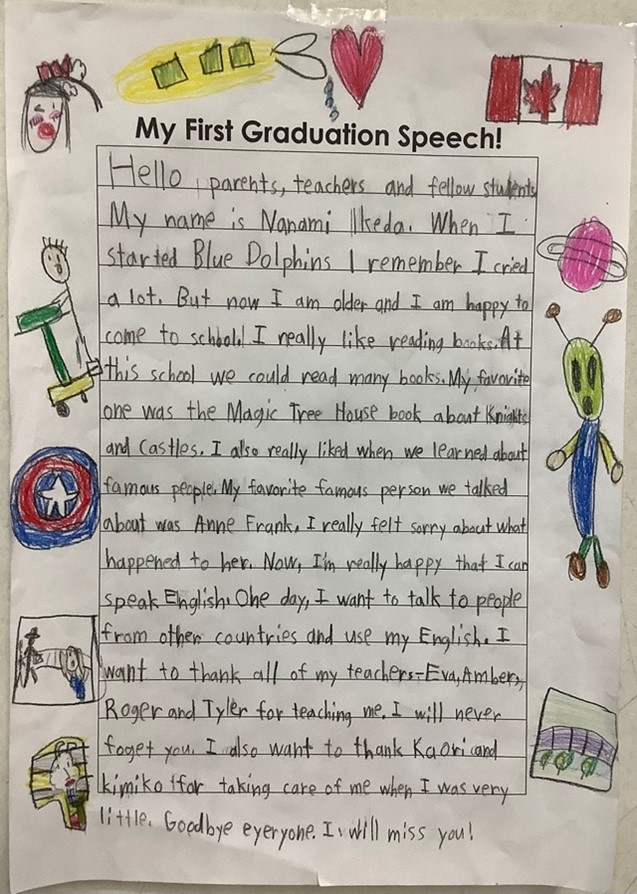 My First Graduation Speech!
Hello parents, teachers and fellow students
My name is Nanami Ikeda. When I
started Blue Dolphins I remember I cried
a lot. But now I am older and I am happy to
come to school! I really like reading books. At
this school we could read many books. My favorite
one was the Magic Tree House book about Knights
and Castles. I also really liked when we learned about
famous people. My favorite famous person we talked
about was Anne Frank. I really felt sorry about what
happened to her. Now, I'm really happy that I can
speak English. One day, I want to talk to people
from other countries and use my English. I
want to thank all of my teachers-Eva, Amber,
Roger and Tyler for teaching me. I will never
foget you. I also want to thank Kaori and
kimiko for taking care of me when I was very
little. Goodbye eyeryone. I will miss you!